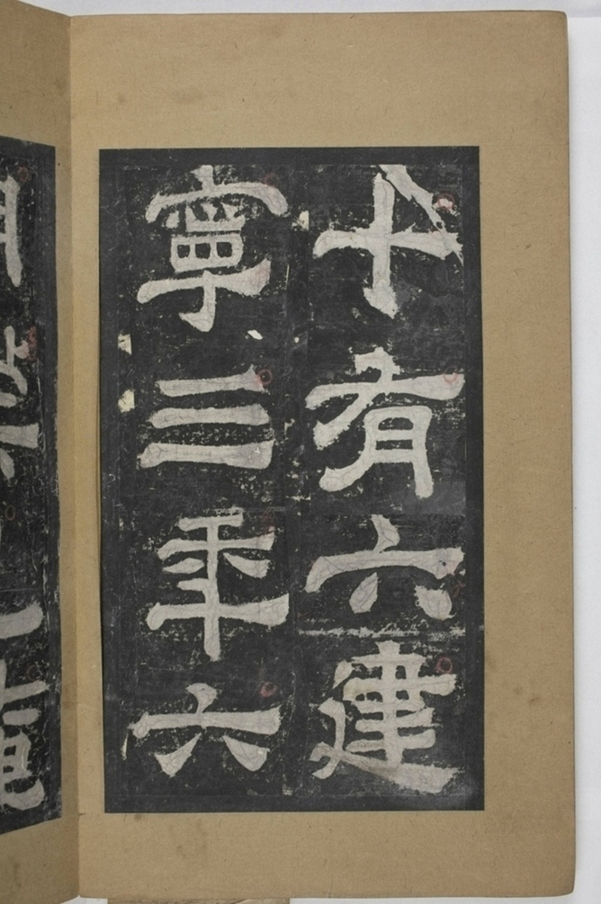 十有六建
寧三年六